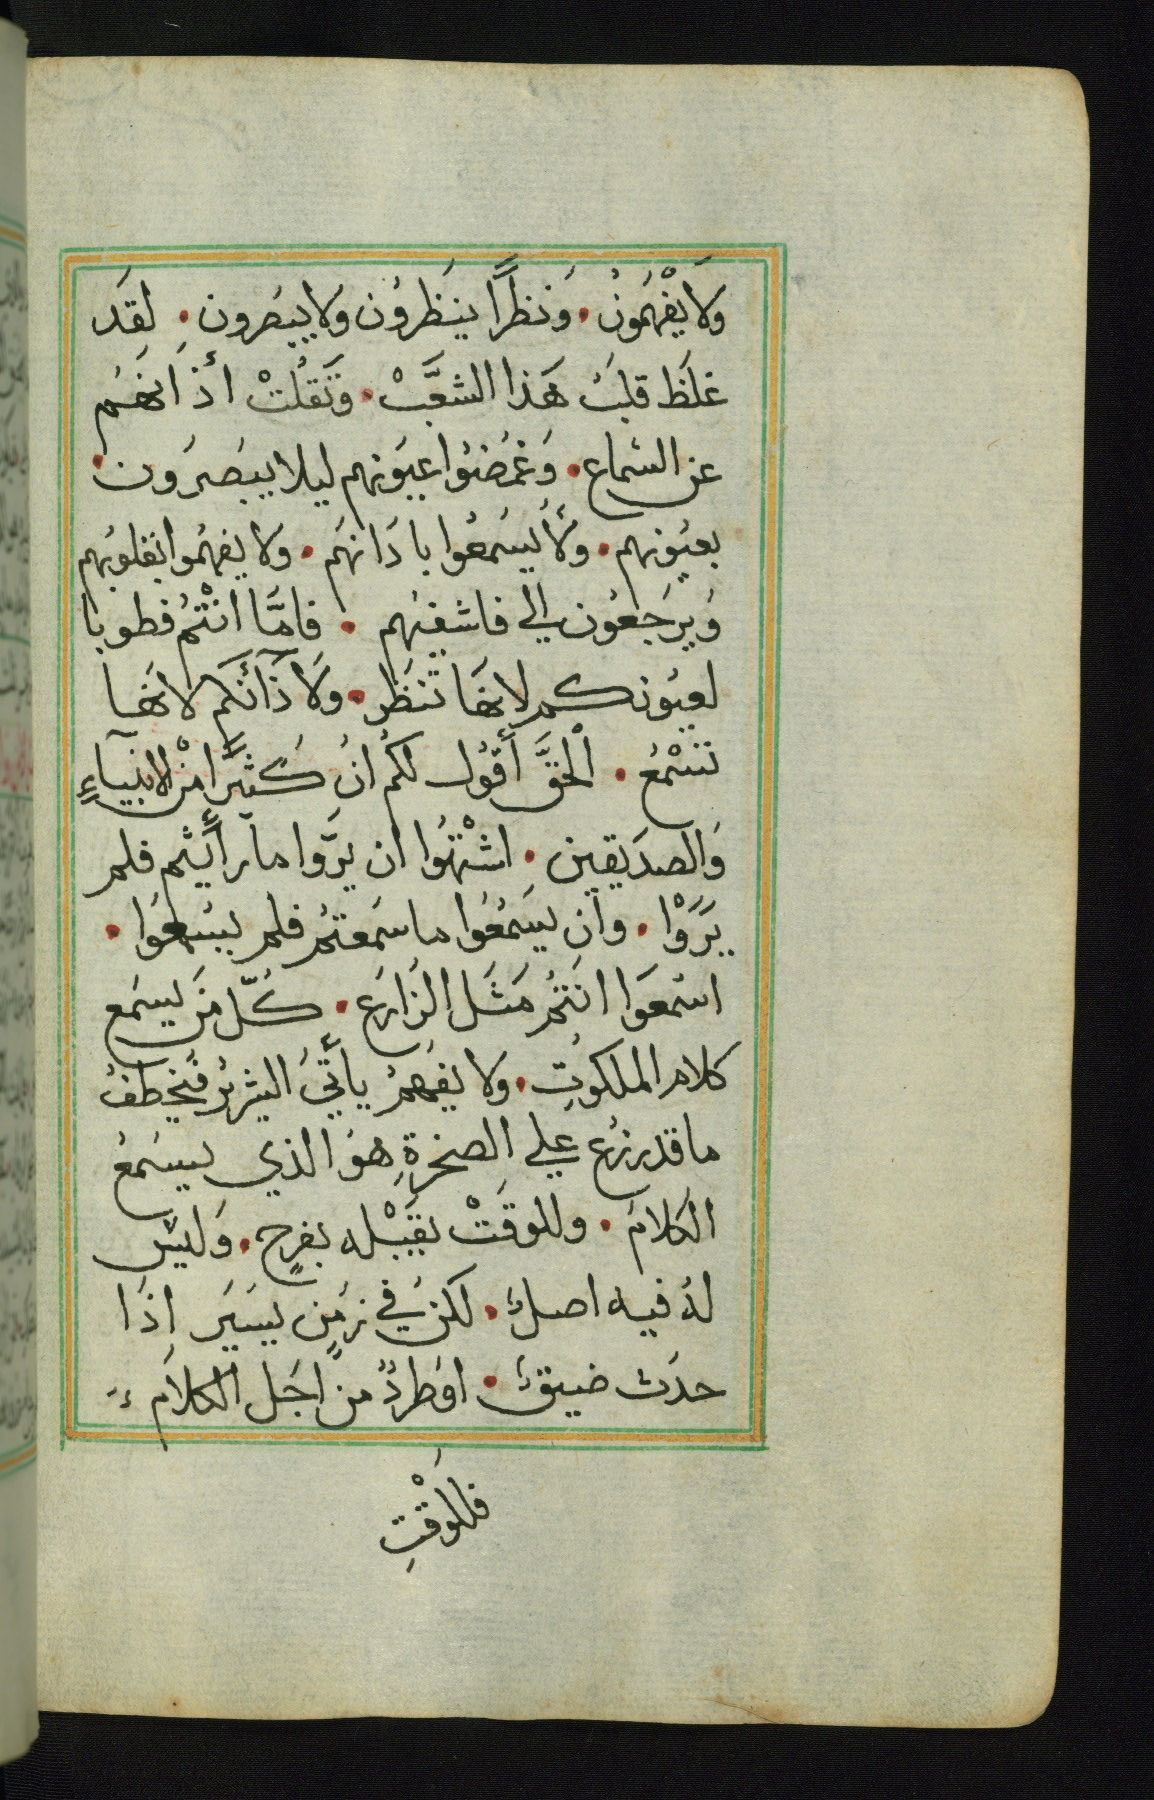 وَلَا يَفْهَمُونَ. وَنظرًا ينَظرُون وَلا يبصَرون. لقَد
غلَظ قلبُ هَذا الشعَّبْ. وَثَقلُتْ اذَانهَم
عن السَماع. وَغمضُوا عيوَنهم ليلا يبصَرَون.
بعيُونهم. ولَا يسَمعُوا باذَانهَم. وَلا يفهمُوا بقلوبُهم
وَيرَجعوُن الي فاشفيهُم. فامَّا انْتُم فطوبا
لعيُونكم لانهَا تنَظَر. وَلَاذَآنكَم لانهَا
تسْمعُ. الْحقَّ أقوُل لكُم انُ كُثيَرًا منْ الانبيآءِ
وَالصدَيقين. اشْتهَوُا ان يرَوا ما رأيتم فلم
يَرَوْا. وان يسَمعُوا ما سَمعتمُ فلم يسَمعوَا.
اسُمعوَا انَتمُ مَثَل الزَارعَ. كُلّ منَ يسَمع
كلام الملكوُتِ. وَلا يفهمُ يأتَيُ الشريرُ فيَخطفُ
ما قد زرُع علي الصخرةِ هوُ الذي يسمَعُ
الكلامَ. وللوقَتْ يقَبْله بفرح. وَليسَ
لهُ فيه اصلُ. لكنُ في زمَنٍ يسَيَر اِذَا
حدَث ضيقُ. اوَطردُ منَ اجَل الكلامَ
فللوَقْتِ